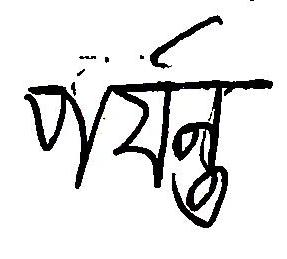 পর্যন্ত